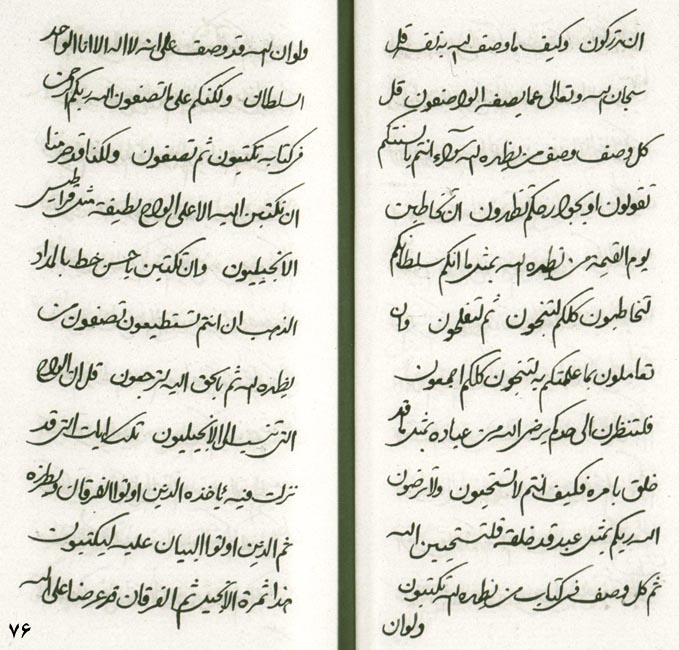 ان تدركون وكيف ما وصف الله به نفسه قل
سبحان الله وتعالى عما يصفه الواصفون قل
كل وصف وصف من يظهره الله سواء انتم بالسنتكم
تقولون او بجوارحكم تظهرون ان تخاطبن
يوم القيمة من يظهره الله بمثل ما انكم سلطانكم
لتخاطبون كلكم لتنجون ثم لتفلحون وان
تعاملون بما علمتكم به لتنجون كلكم اجمعون
فلتنظرن الى احدكم يرضى الله من عباده بمثل ما قد
خلق بامره فكيف انتم لا تستحيون ولا ترضون
الله ربكم بمثل عبد قد خلقه فلتستحيين الله
ثم كل وصف في كتاب من يظهره الله تكتبون
ولوان
ولوان الله قد وصف على انه لا اله الا انا الواحد
السلطان ولكنكم على تصفون الله ربكم الرحمن
في كتابه تكتبون ثم تصفون ولكنا قد
ان تكتبن اليه الا على الواح لطيفة مثل قراطيس
الانجيليون وان تكتبن باحسن خط بالمداد
الذهب ان انتم تستطيعون تصفون من
يظهره الله ثم بالحق اليه ترجعون قل ان الواح
التي تنسب الى الانجيليون تلك ايات التي قد
نزلت فيه ياخذه الذين اوتوا الفرقان
ثم الذين اوتوا البيان عليه ليكتبون
هذا ثمرة الانجيل ثم الفرقان قد عرضنا على الله
۷۶